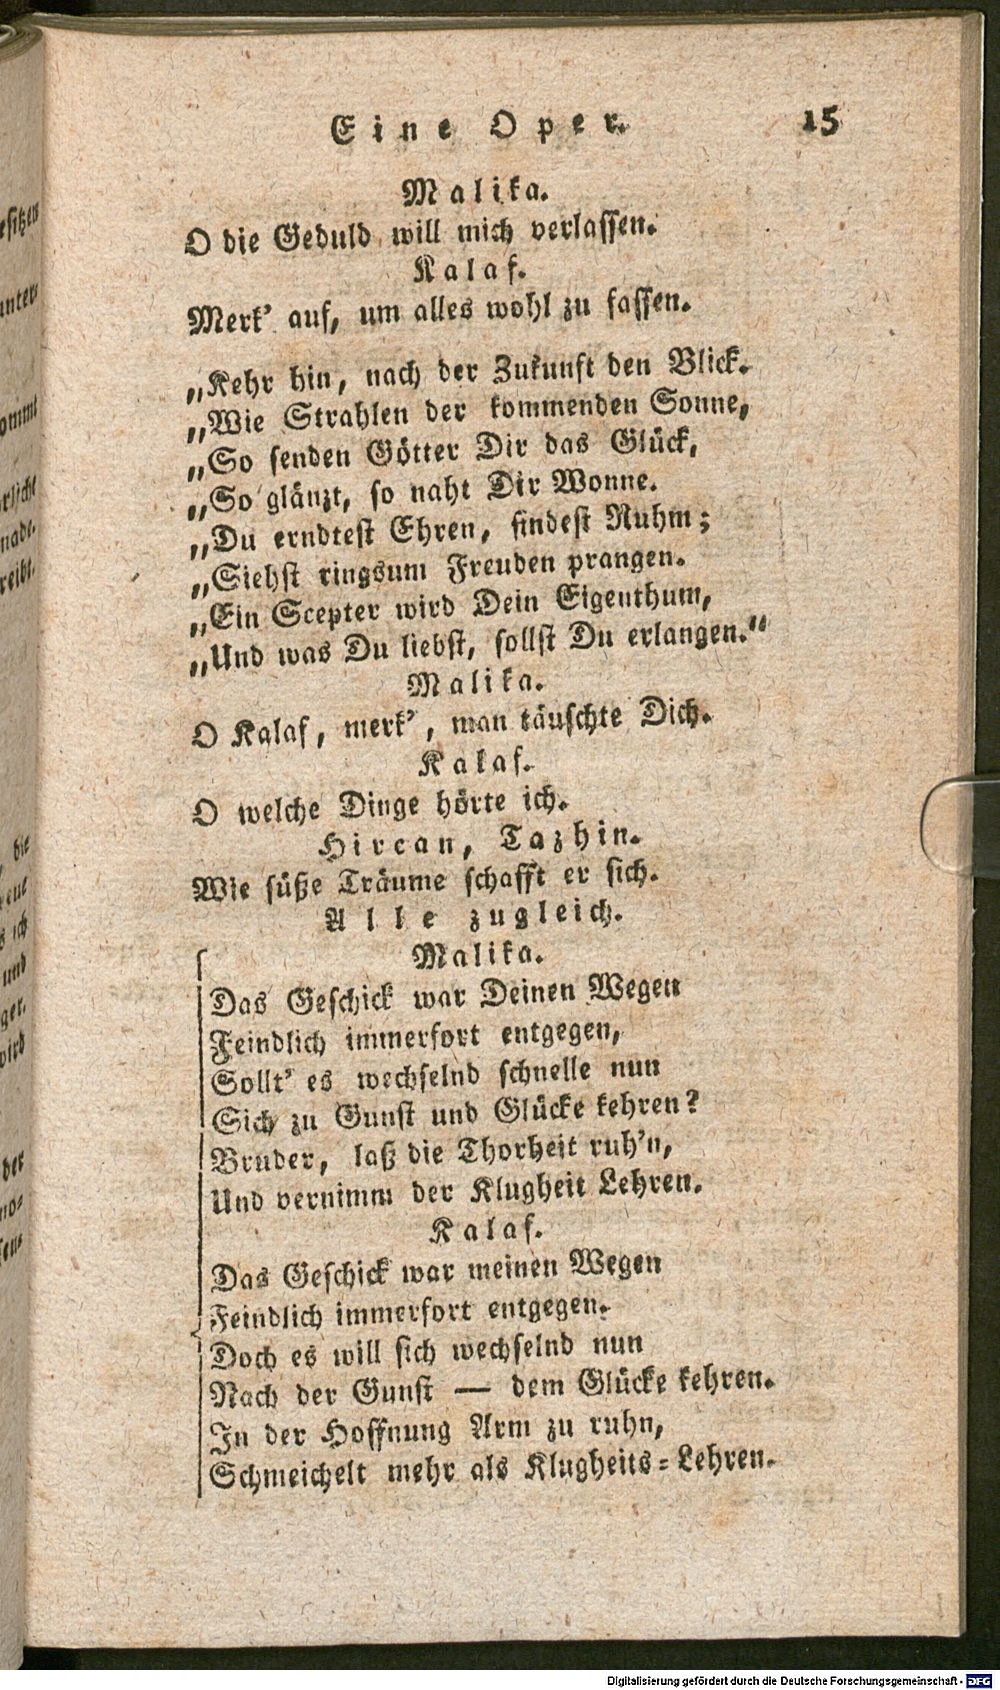 Eine Oper. 15
Malika.
O die Geduld will mich verlassen.
Kalaf.
Merk' auf, um alles wohl zu fassen.
„Kehr hin, nach der Zukunft den Blick.
„Wie Strahlen der kommenden Sonne,
„So senden Götter Dir das Glück,
„So glänzt, so naht Dir Wonne.
„Du erndtest Ehren, findest Ruhm;
„Siehst ringsum Freuden prangen.
„Ein Scepter wird Dein Eigenthum,
„Und was Du liebst, sollst Du erlangen.“
Malika.
O Kalaf, merk', man täuschte Dich.
Kalaf.
O welche Dinge hörte ich.
Hircan, Tazhin.
Wie süße Träume schafft er sich.
Alle zugleich.
Malika.
Das Geschick war Deinen Wegen
Feindlich immerfort entgegen,
Sollt' es wechselnd schnelle nun
Sich zu Gunst und Glücke kehren?
Bruder, laß die Thorheit ruh'n,
Und vernimm der Klugheit Lehren.
Kalaf.
Das Geschick war meinen Wegen
Feindlich immerfort entgegen.
Doch es will sich wechselnd nun
Nach der Gunst — dem Glücke kehren.
In der Hoffnung Arm zu ruhn,
Schmeichelt mehr als Klugheits-Lehren.
Digitalisierung gefördert durch die Deutsche Forschungsgemeinschaft - DFG